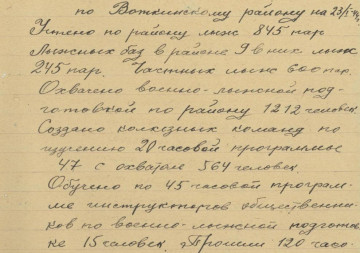 по Воткинскому району на 23/I-44
Учтено по району лыж 845 пар
Лыжных баз в районе 9 в них лыж
245 пар. Частных лыж 600 пар.
Охвачено военно-лыжной под-
готовкой по району 1212 человек
Создано колхозных команд по
изучению 20 часовой программы
47 с охватом 564 человек.
Обучено по 45 часовой програм-
ме инструкторов общественни-
ков по военно-лыжной подготов-
ке 15 человек. Прошли 120 часо-